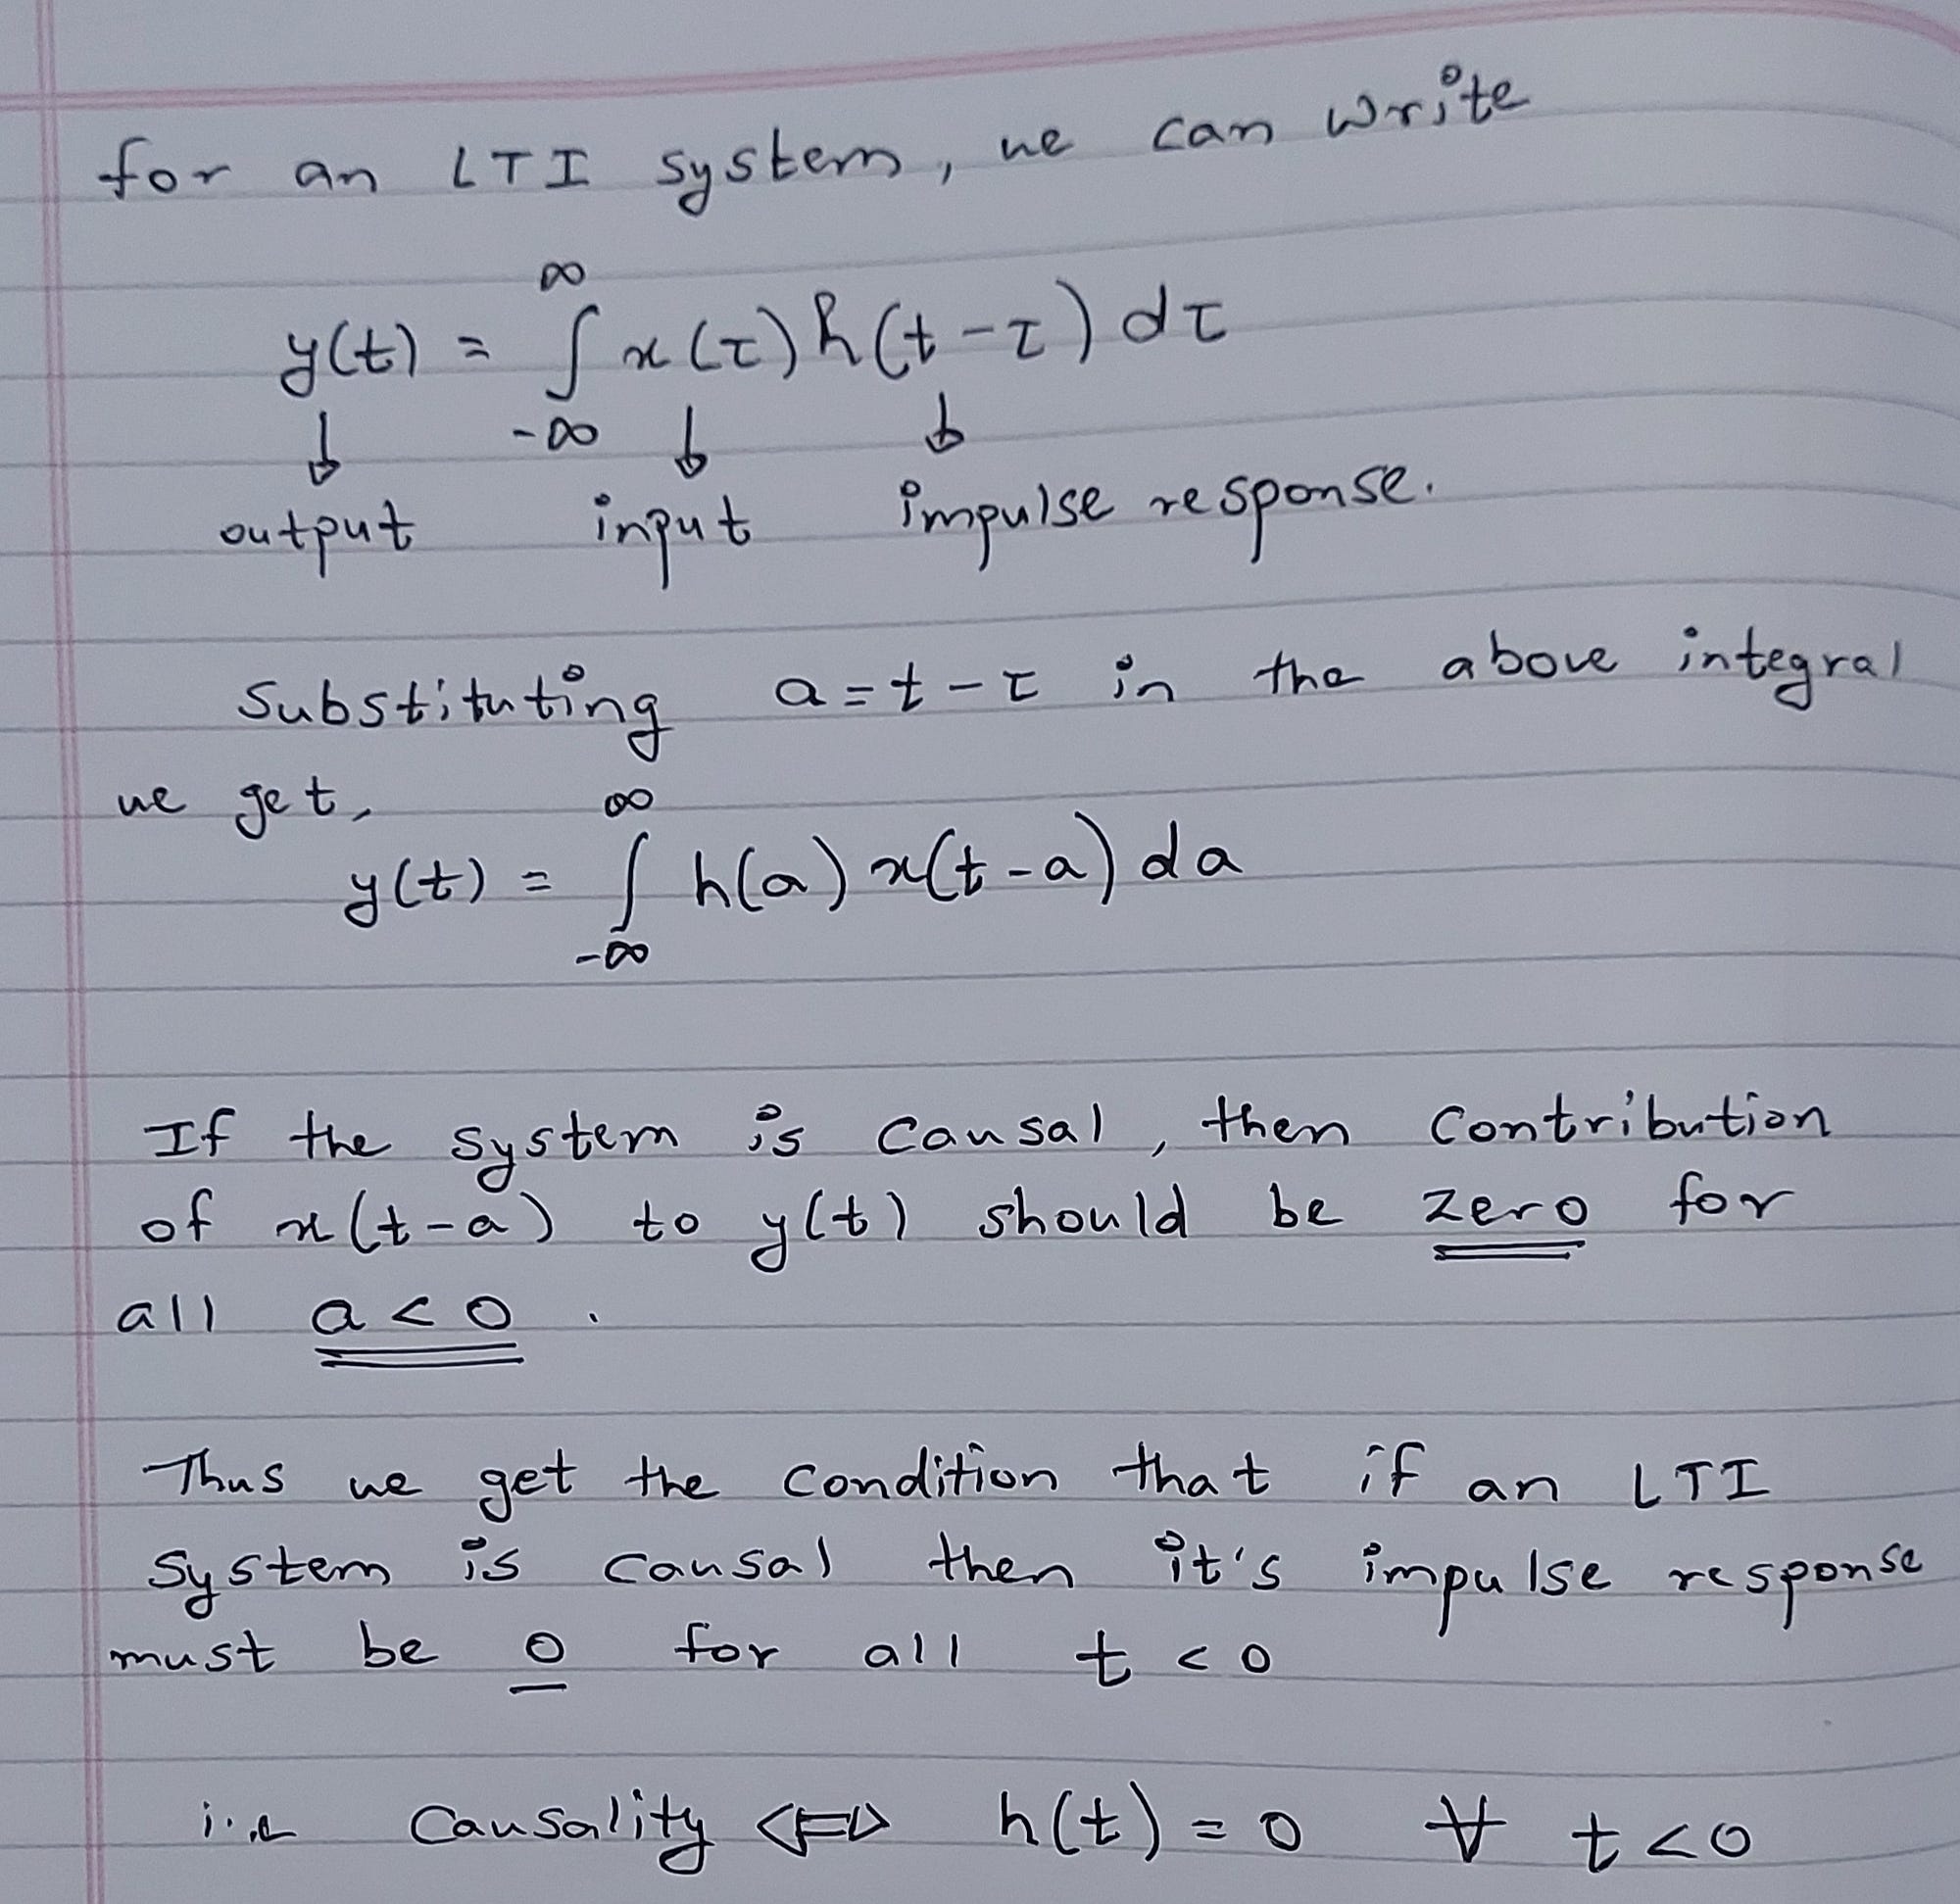 for an LTI system, we can write
∞
y(t) = ∫ x(τ) h(t-τ) dτ
-∞
↓ ↓ ↓
output input impulse response.
Substituting a = t-τ in the above integral
we get,
∞
y(t) = ∫ h(a) x(t-a) da
-∞
If the system is causal, then contribution
of x(t-a) to y(t) should be zero for
all a<0.
Thus we get the condition that if an LTI
system is causal then it's impulse response
must be 0 for all t<0
i.e Causality ⟺ h(t) = 0 ∀ t<0